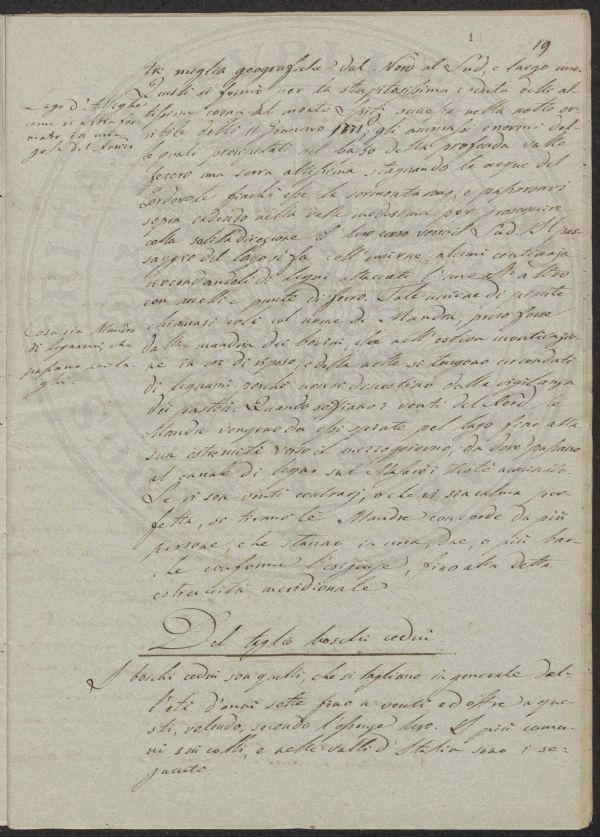 19
tre miglia geografiche dal Nord al Sud, e largo uno.
Questi si formò per la stupitosissima caduta dello al
tissimo monte Spitz successa nella notte or
ribile delli 11 Gennaro 1771, gli ammassi enormi del
le quali precipitati nel basso della profonda valle
fecero una serra altissima stagnando le acque del
Cordevole finchè che la sormontarono, e passarono
sopra cadendo nella valle medesima per proseguire
colla solita direzione il loro corso verso il Sud. Il pas
saggio del lago si fa coll' unirne alcuni continaja
circondandoli di legni attaccati l'uno all' altro
con anelli e punte di ferro. Tale unione di piante
chiamasi colà col nome di Mandra, preso forse
dalla mandra dei bovini, che nell' estiva monticazio
ne in ore di riposo, e della notte si tengono circondati
di legnami perchè non si discostino dalla vigilanza
dei pastori. Quando soffiano i venti del Nord le
Mandre vengono da essi spirate pel lago fino alla
sua estremità verso il mezzogiorno, da dove passano
al canale di legno sul
Se vi son venti contrarj, o che vi sia calma per-
fetta, si tirano le Mandre con corde da più
persone, che stanno in una, due, o più bar-
che conforme l'esigenze, fino alla detta
estremità meridionale
Lago d'Alleghe
come si è forma
to, in una
gola del
Cosa sia Mandra
di legnami, che
passano pei la-
ghi.
Del taglio boschi cedui.
I boschi cedui son quelli, che si tagliano in generale dal-
l'età d'anni sette fino a venti ed oltre a que-
sti, volendo, secondo l'esigenze loro. I più comu-
ni sui colli, e nelle valli d'Italia sono i se-
guenti